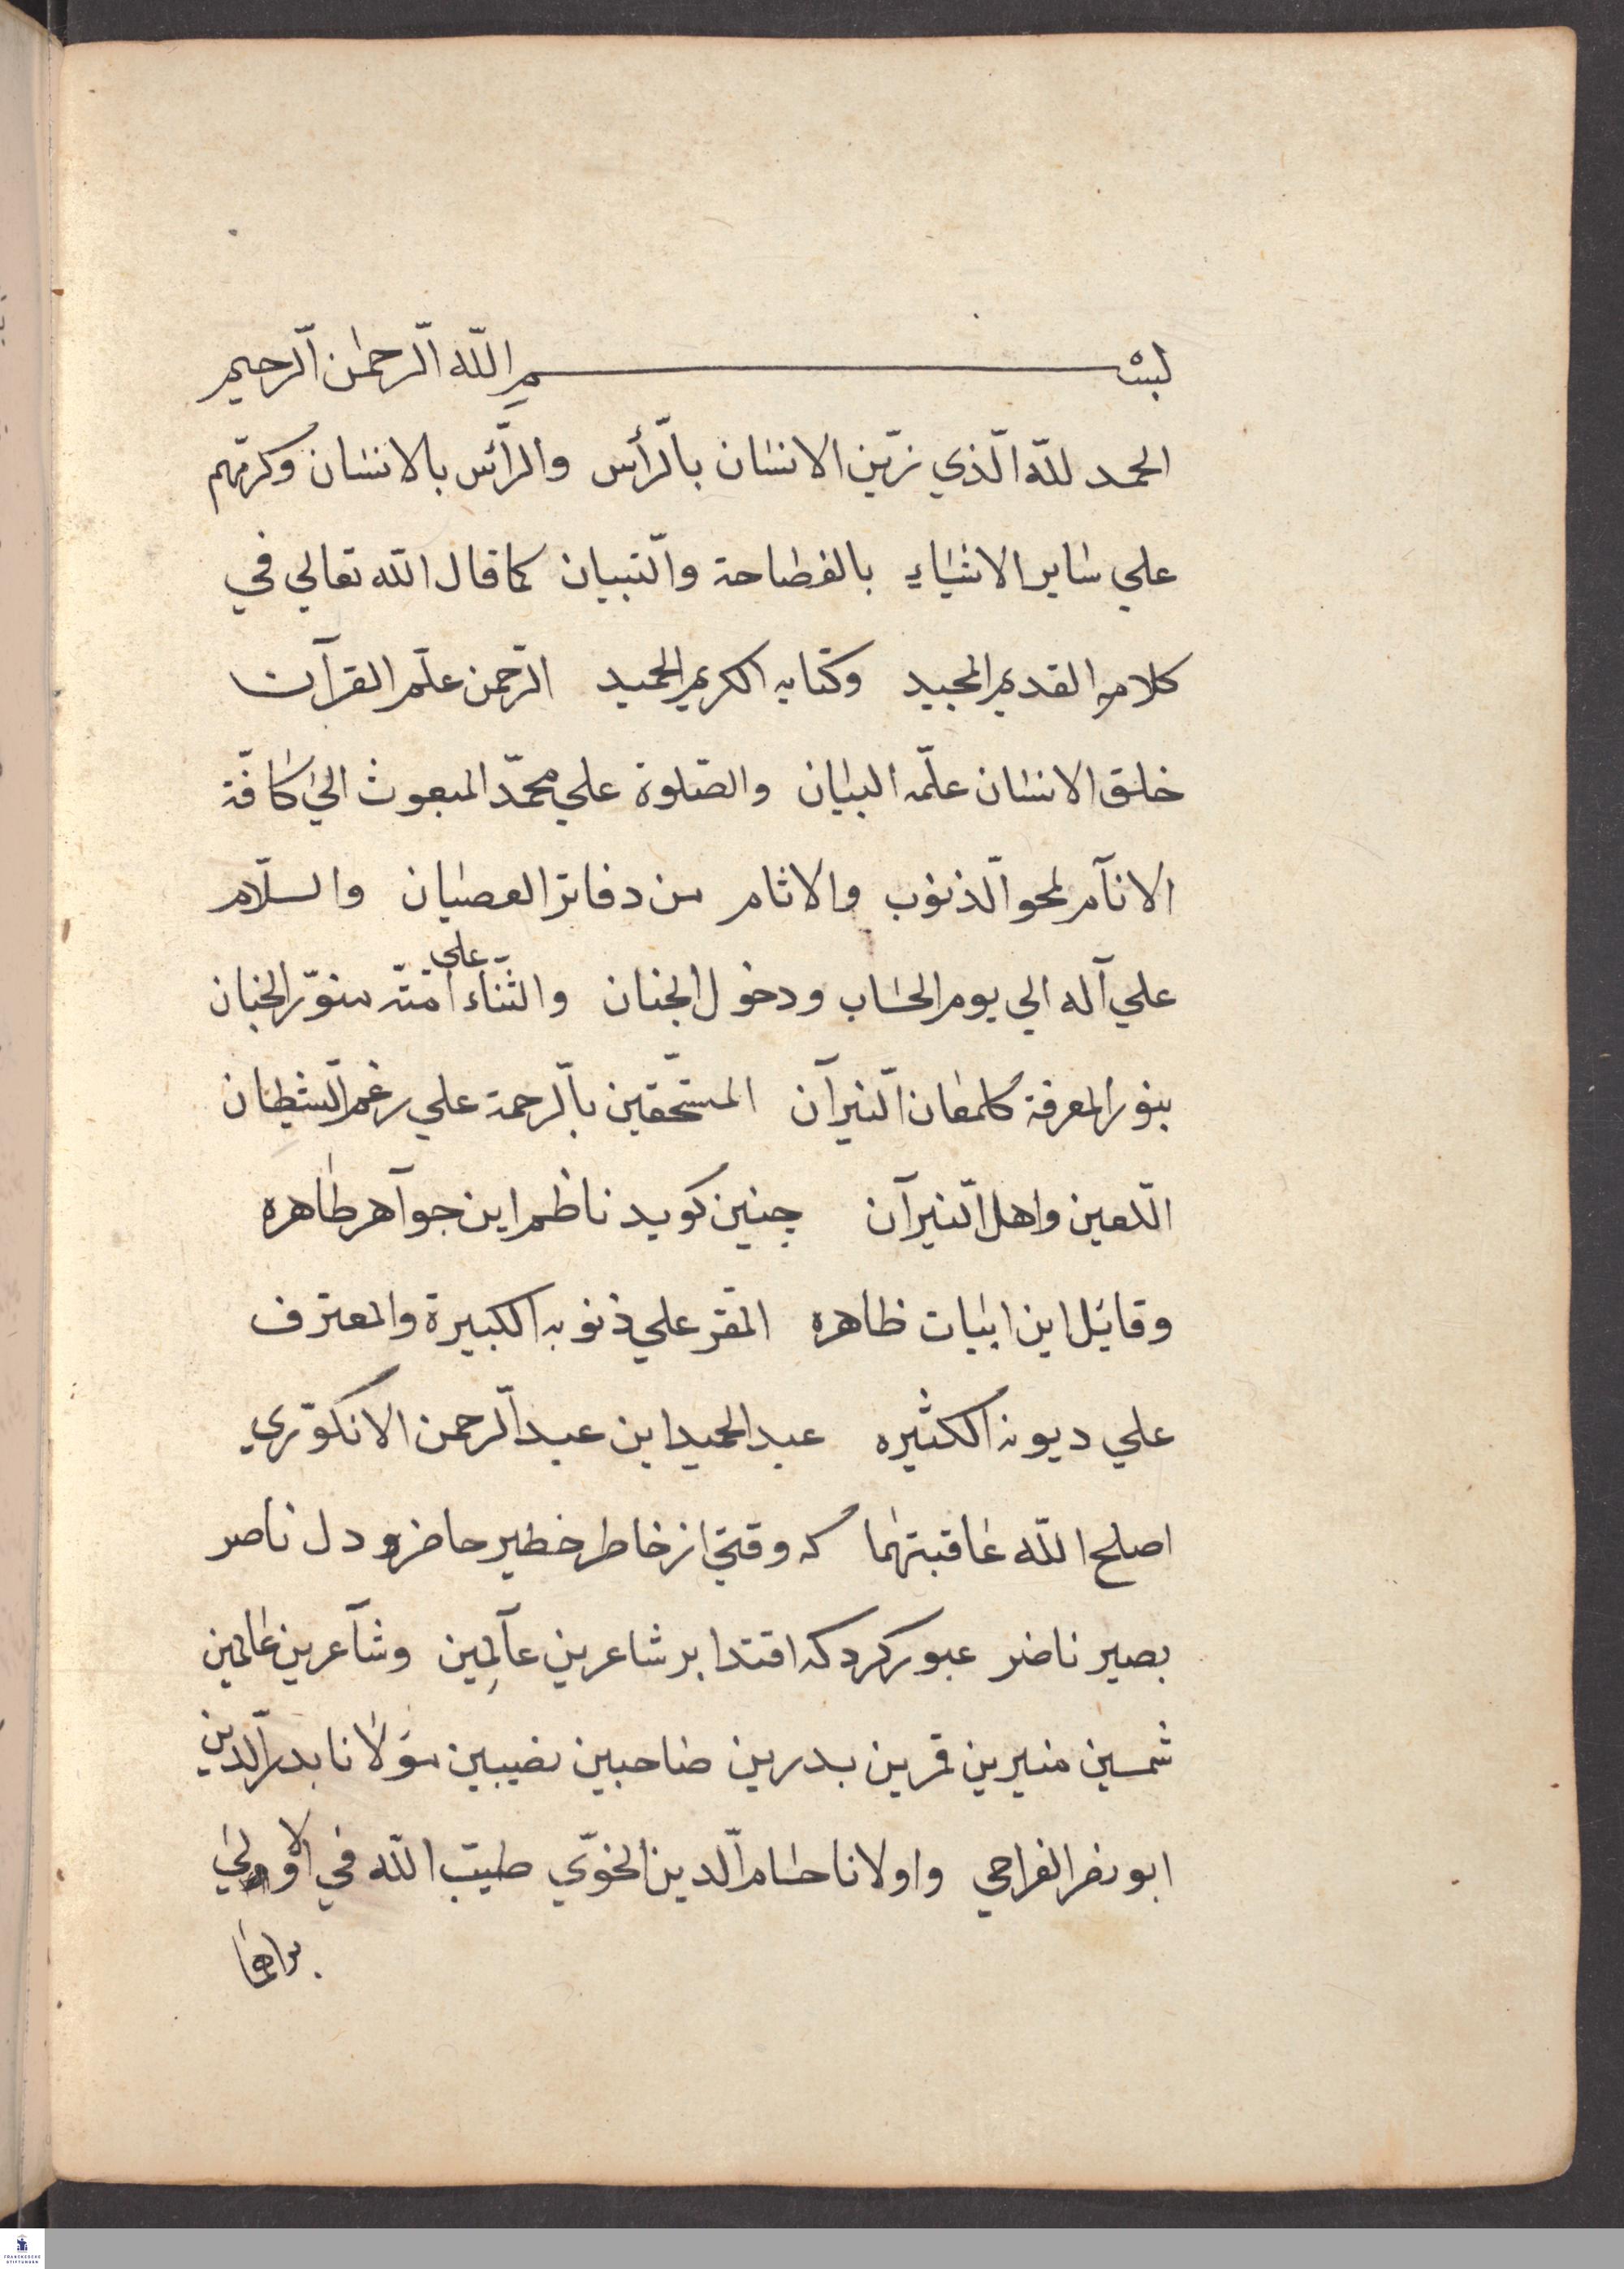 بسم الله الرّحمٰن الرّحيم
الحمد للّه الّذي زيّن الانسان بالرّأس والرّأس بالانسان وكرّمهم
علي ساير الاشياءِ بالفصاحة والتّبيان كما قال الله تعالي في
كلامه القديم المجيد وكتابه الكريم الحميد الرّحمن علّم القرآن
خلق الانسان علّمه البيان والصّلوة علي محمّد المبعوث الي كافّة
الانآم لمحو الّذنوب والاثام من دفاتر العصيان والسلّام
علي آله الي يوم الحساب ودخول الجنان والثّناء علي امّته منوّر الجنان
بنور المعرفة كلمعان النّيرآن المستحّقين بالرّحمة علي رغم الشّيطان
اللّعين واهل النّيرآن چنين كويد ناظم اين جوآهر طاهره
وقائل اين ابيات ظاهره المقر علي ذنوبه الكبيرة والمعترف
علي ديونه الكثيره عبد الحميد ابن عبد الّرحمن الانكوّري
اصلح اللّه عاقبتهما كه وقتي از خاطر خطير حاضر و دل ناصر
بصير ناضر عبور كرد كه اقتدا بر شاعرين عآلِمين وشآعرين عالمين
شمسين منيرين قمرين بدرين صاحبين نصيبين مولانا بدر الّدين
ابو نصر الفراحي واولانا حسام الّدين الخوّي طيّب اللّه في الاولي